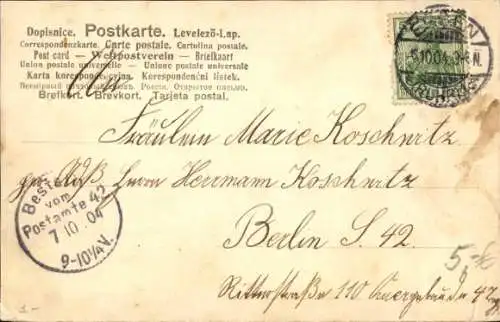 Dopisnice. Postkarte. Levelezö-Lap.
Correspondenzkarte. Carte postale. Cartolina postale.
Post card — Weltpostverein — Briefkaart
Union postale universelle — Unione postale universale
Karta korespondencyjna. Korespondenční lístek.
Всемірный почтовый союз. Россія. Открытое письмо.
Brefkort. Brevkort. Tarjeta postal.
6.10.04.
Fräulein Marie Koschwitz
Herrn Herrmann Koschwitz
Berlin S. 42.
Ritterstraße 110 Quergebäude
Bestellt
vom
Postamte 42
7 10. 04
9-10¼V.
1-